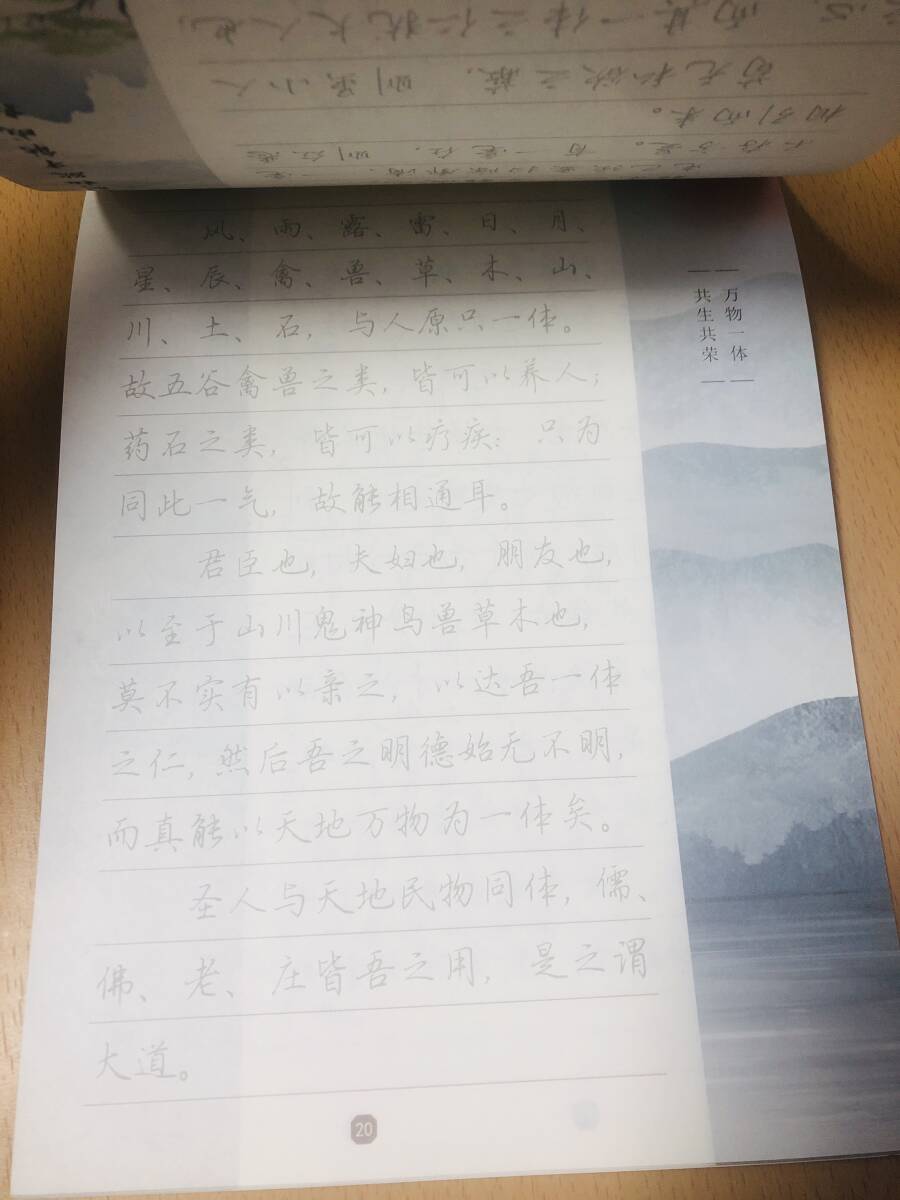 风、雨、露、雷、日、月、
星、辰、禽、兽、草、木、山、
川、土、石，与人原只一体。
故五谷禽兽之类，皆可以养人；
药石之类，皆可以疗疾：只为
同此一气，故能相通耳。
君臣也，夫妇也，朋友也，
以至于山川鬼神鸟兽草木也，
莫不实有以亲之，以达吾一体
之仁，然后吾之明德始无不明，
而真能以天地万物为一体矣。
圣人与天地民物同体，儒、
佛、老、庄皆吾之用，是之谓
大道。
20
万物一体
共生共荣
苟无私欲之蔽，则虽小人
相引而来。